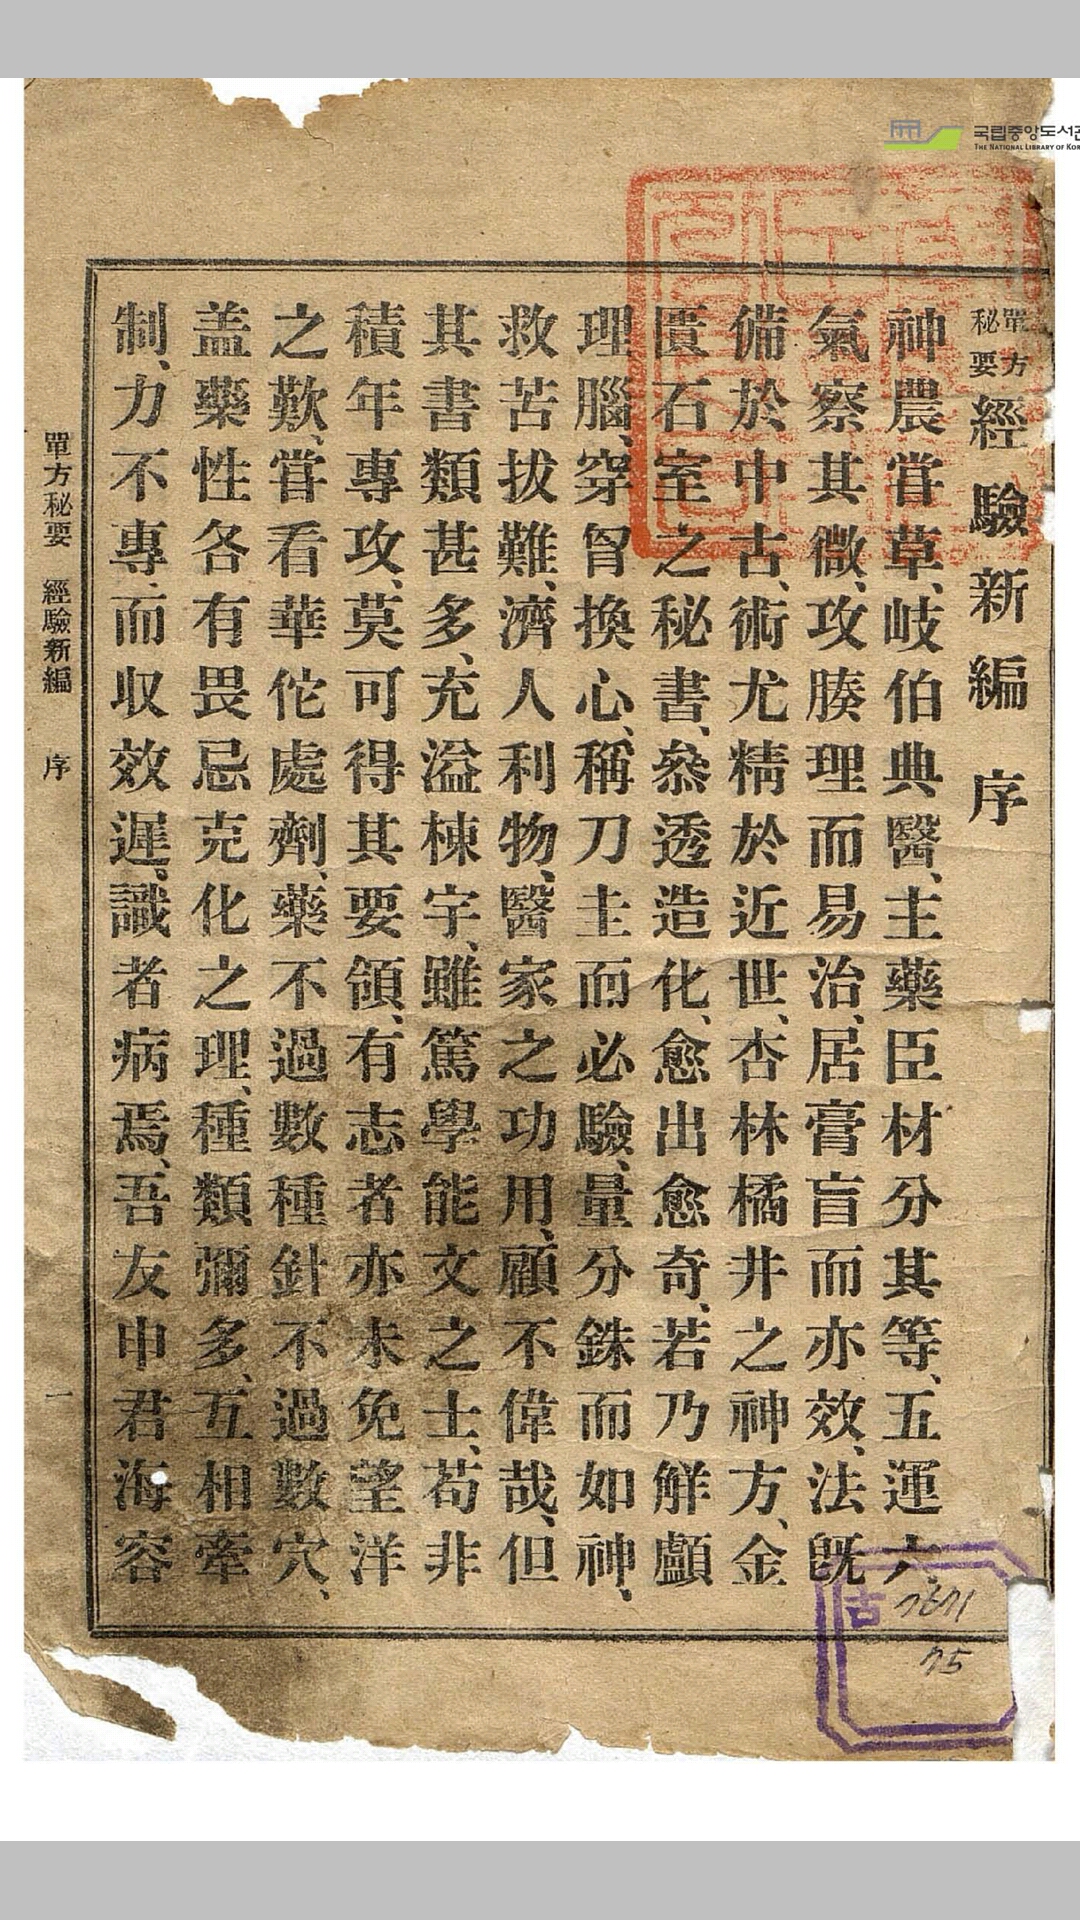 국립중앙도서관
THE NATIONAL LIBRARY OF KOR
單方秘要 經驗新編序
神農甞草、岐伯典醫、主藥臣材分其等、五運六
氣察其微、攻腠理而易治、居膏盲而亦效、法旣
備於中古、術尤精於近世、杏林橘井之神方、金
匱石室之秘書、叅透造化、愈出愈奇、若乃觧顱
理腦、穿胷換心、稱刀圭而必驗、量分銖而如神、
救苦拔難、濟人利物、醫家之功用、顧不偉哉、但
其書類甚多、充溢棟宇、雖篤學能文之士、苟非
積年專攻、莫可得其要領、有志者亦未免望洋
之歎、甞看華佗處劑、藥不過數種針不過數穴、
盖藥性各有畏忌克化之理、種類彌多、互相牽
制、力不專、而収效遲、識者病焉、吾友申君海容
單方秘要 經驗新編 序 一
古
75